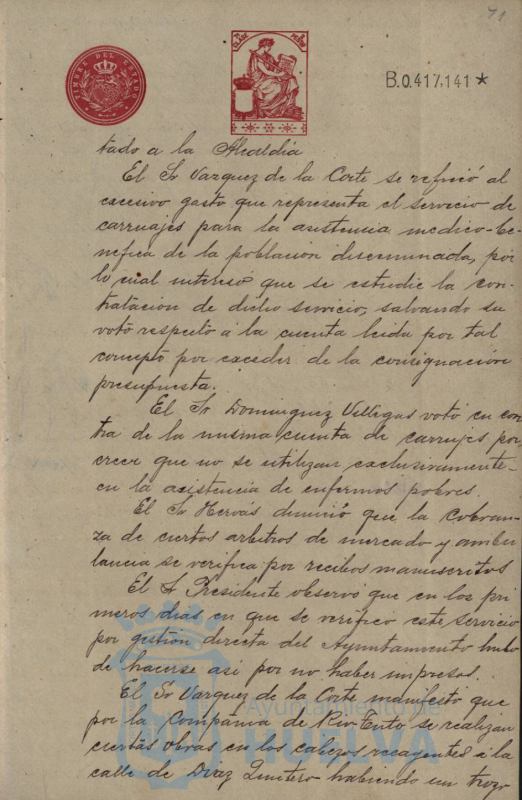 71
TIMBRE DEL ESTADO
CLASE
B.0.417,141 *
tado a la Alcaldia
El Sr Vazquez de la Corte se refirió al
excesivo gasto que representa el servicio de
carruajes para la asistencia medico-be-
nefica de la poblacion diseminada, por
lo cual intereso que se estudie la con-
tratacion de dicho servicio, salvando su
voto respecto á la cuenta leida por tal
concepto por exceder de la consignación
presupuesta.
El Sr Dominguez Villegas votó en con
tra de la misma cuenta de carruajes por
creer que no se utilizan exclusivamente
en la asistencia de enfermos pobres.
El Sr Hervás denunció que la Cobran-
za de ciertos arbitros de mercado y ambu
lancia se verifica por recibos manuscritos
El Sr Presidente observó que en los pri
meros dias en que se verificó este servicio
por gestión directa del Ayuntamiento hubo
de hacerse asi por no haber impresos.
El Sr Vazquez de la Corte manifestó que
por la Compañia de Rio-Tinto se realizan
ciertas obras en los cabezos recayentes á la
calle de Diaz Quintero habiendo un trozo
Ayuntamiento de
HUELVA